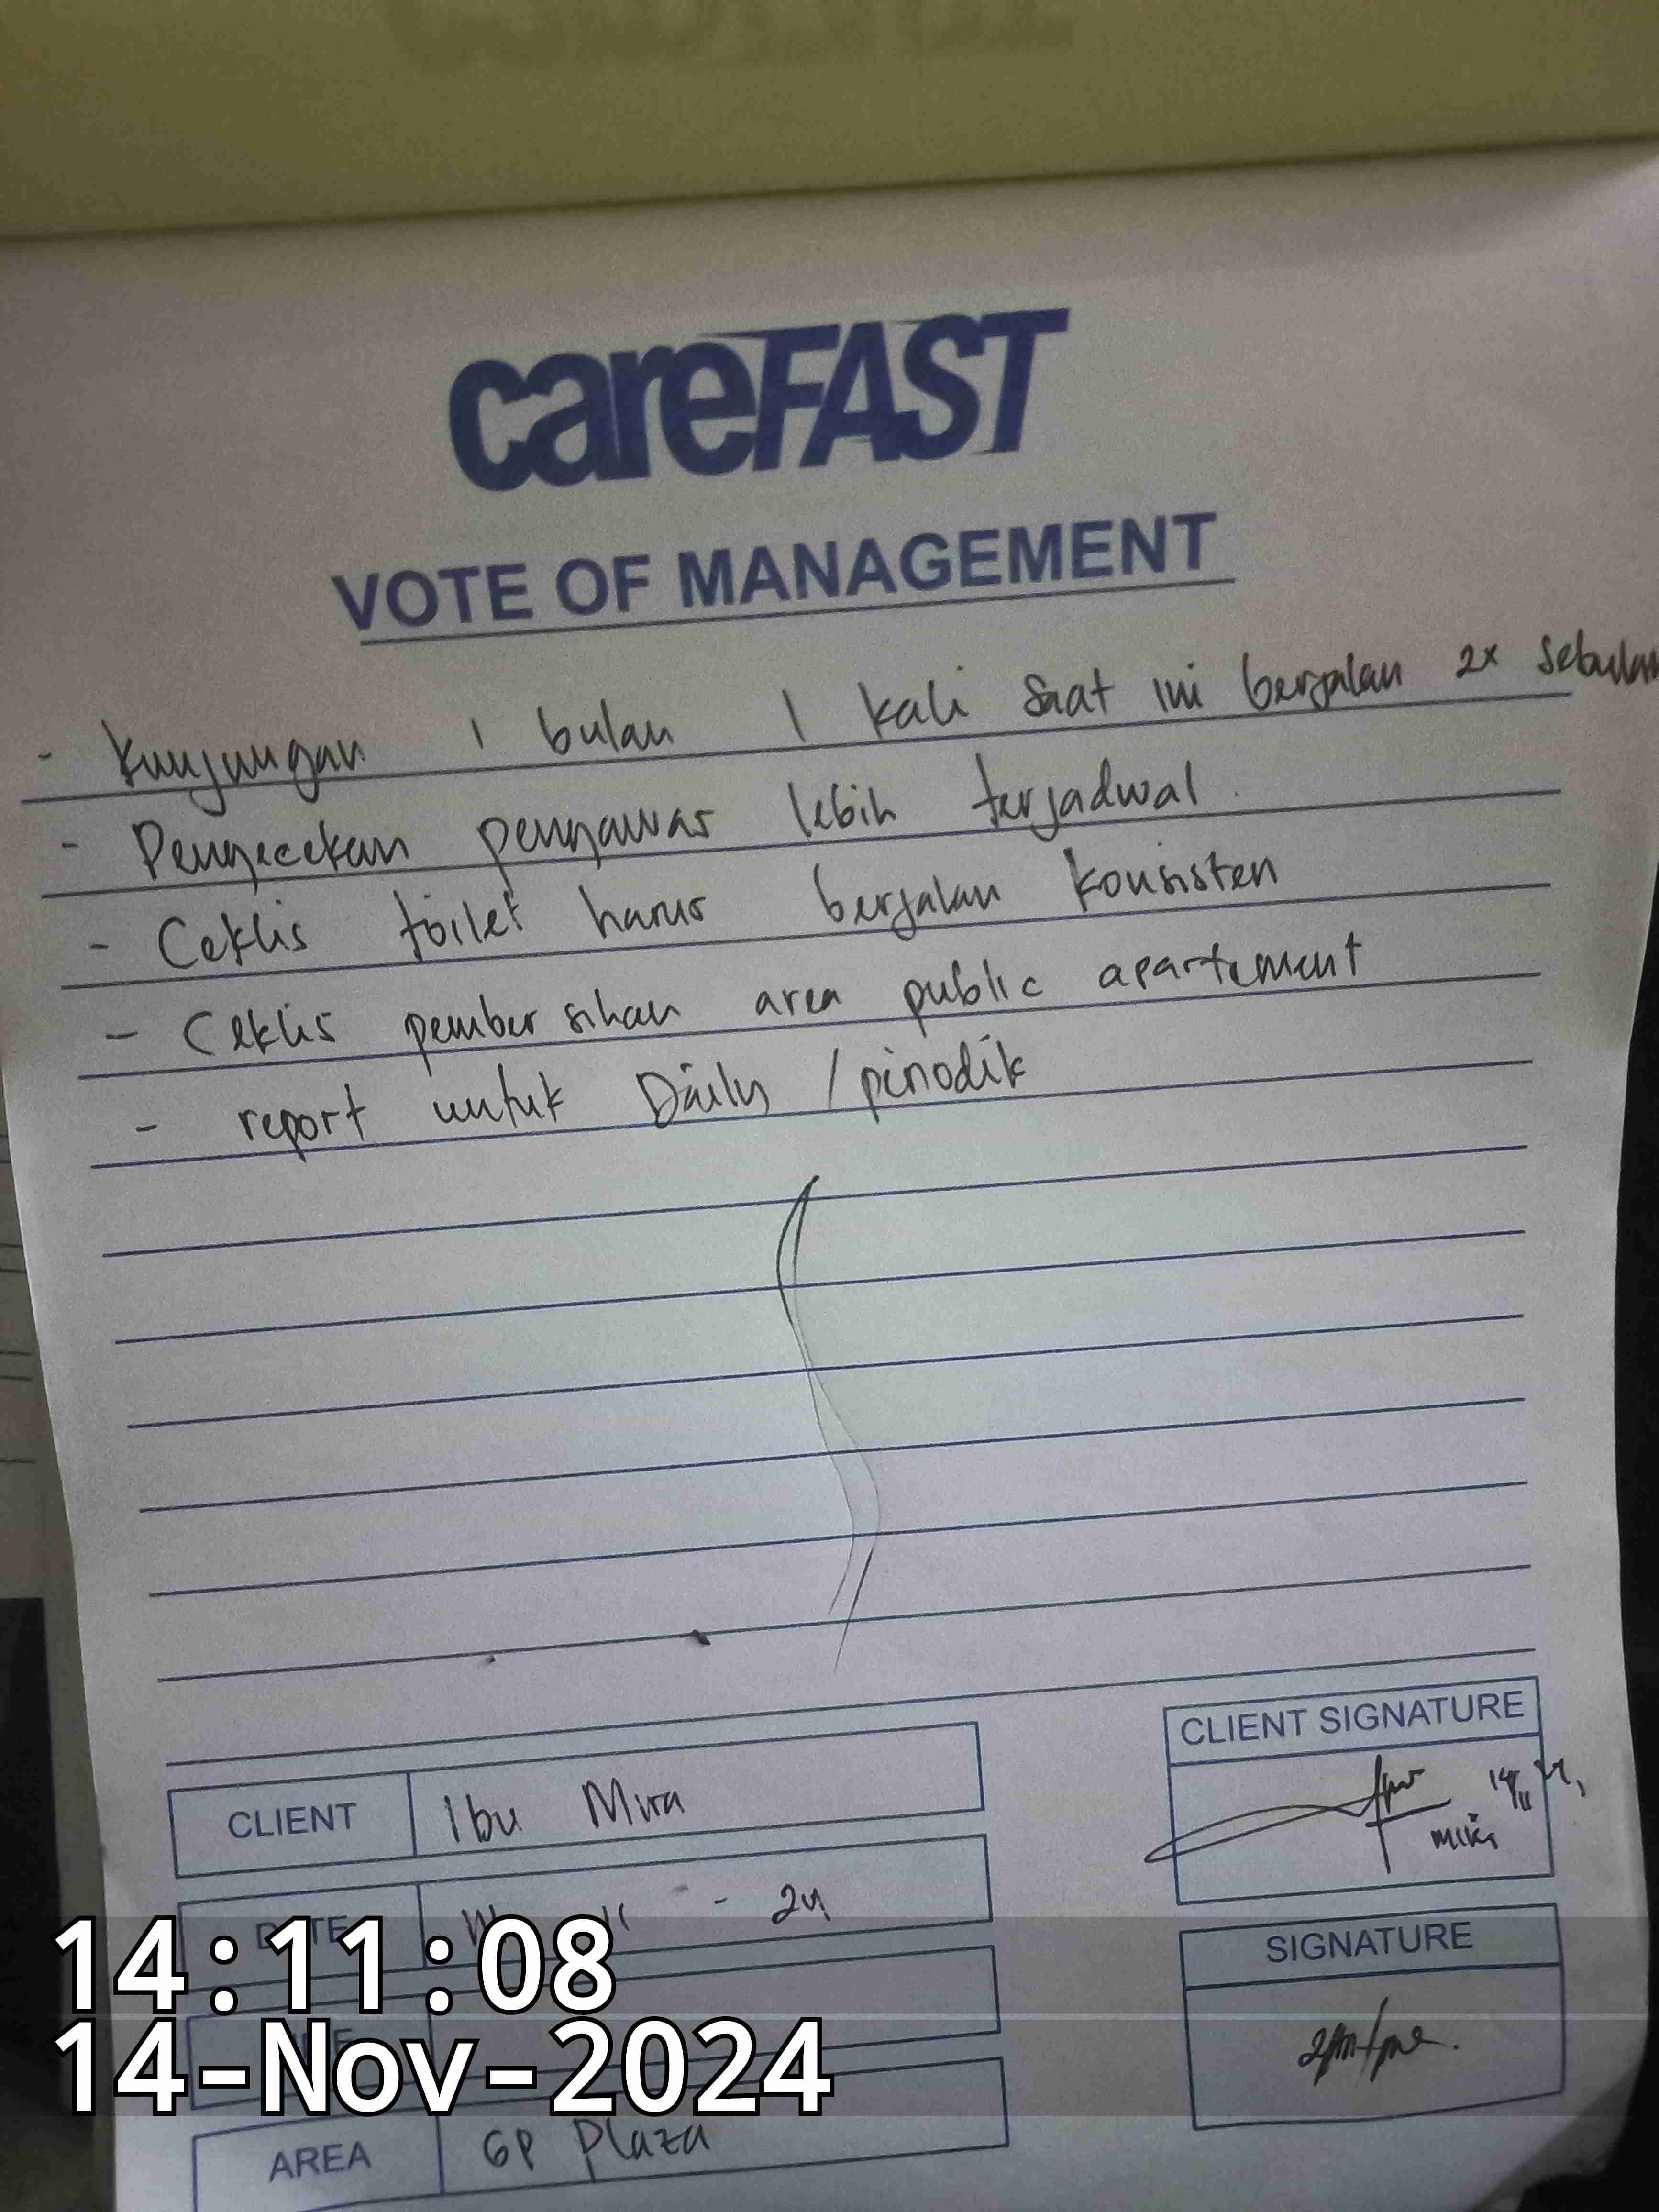 careFAST
VOTE OF MANAGEMENT
- Kunjungan 1 bulan 1 kali saat ini berjalan 2x sebulan
- Pengecekan pengawas lebih terjadwal.
- Ceklis toilet harus berjalan konsisten
- Ceklis pembersihan area public apartement
- report untuk Daily / piriodik
CLIENT SIGNATURE
CLIENT Ibu Mira
DATE - 24
SIGNATURE
14:11:08
14-Nov-2024
AREA GP Plaza